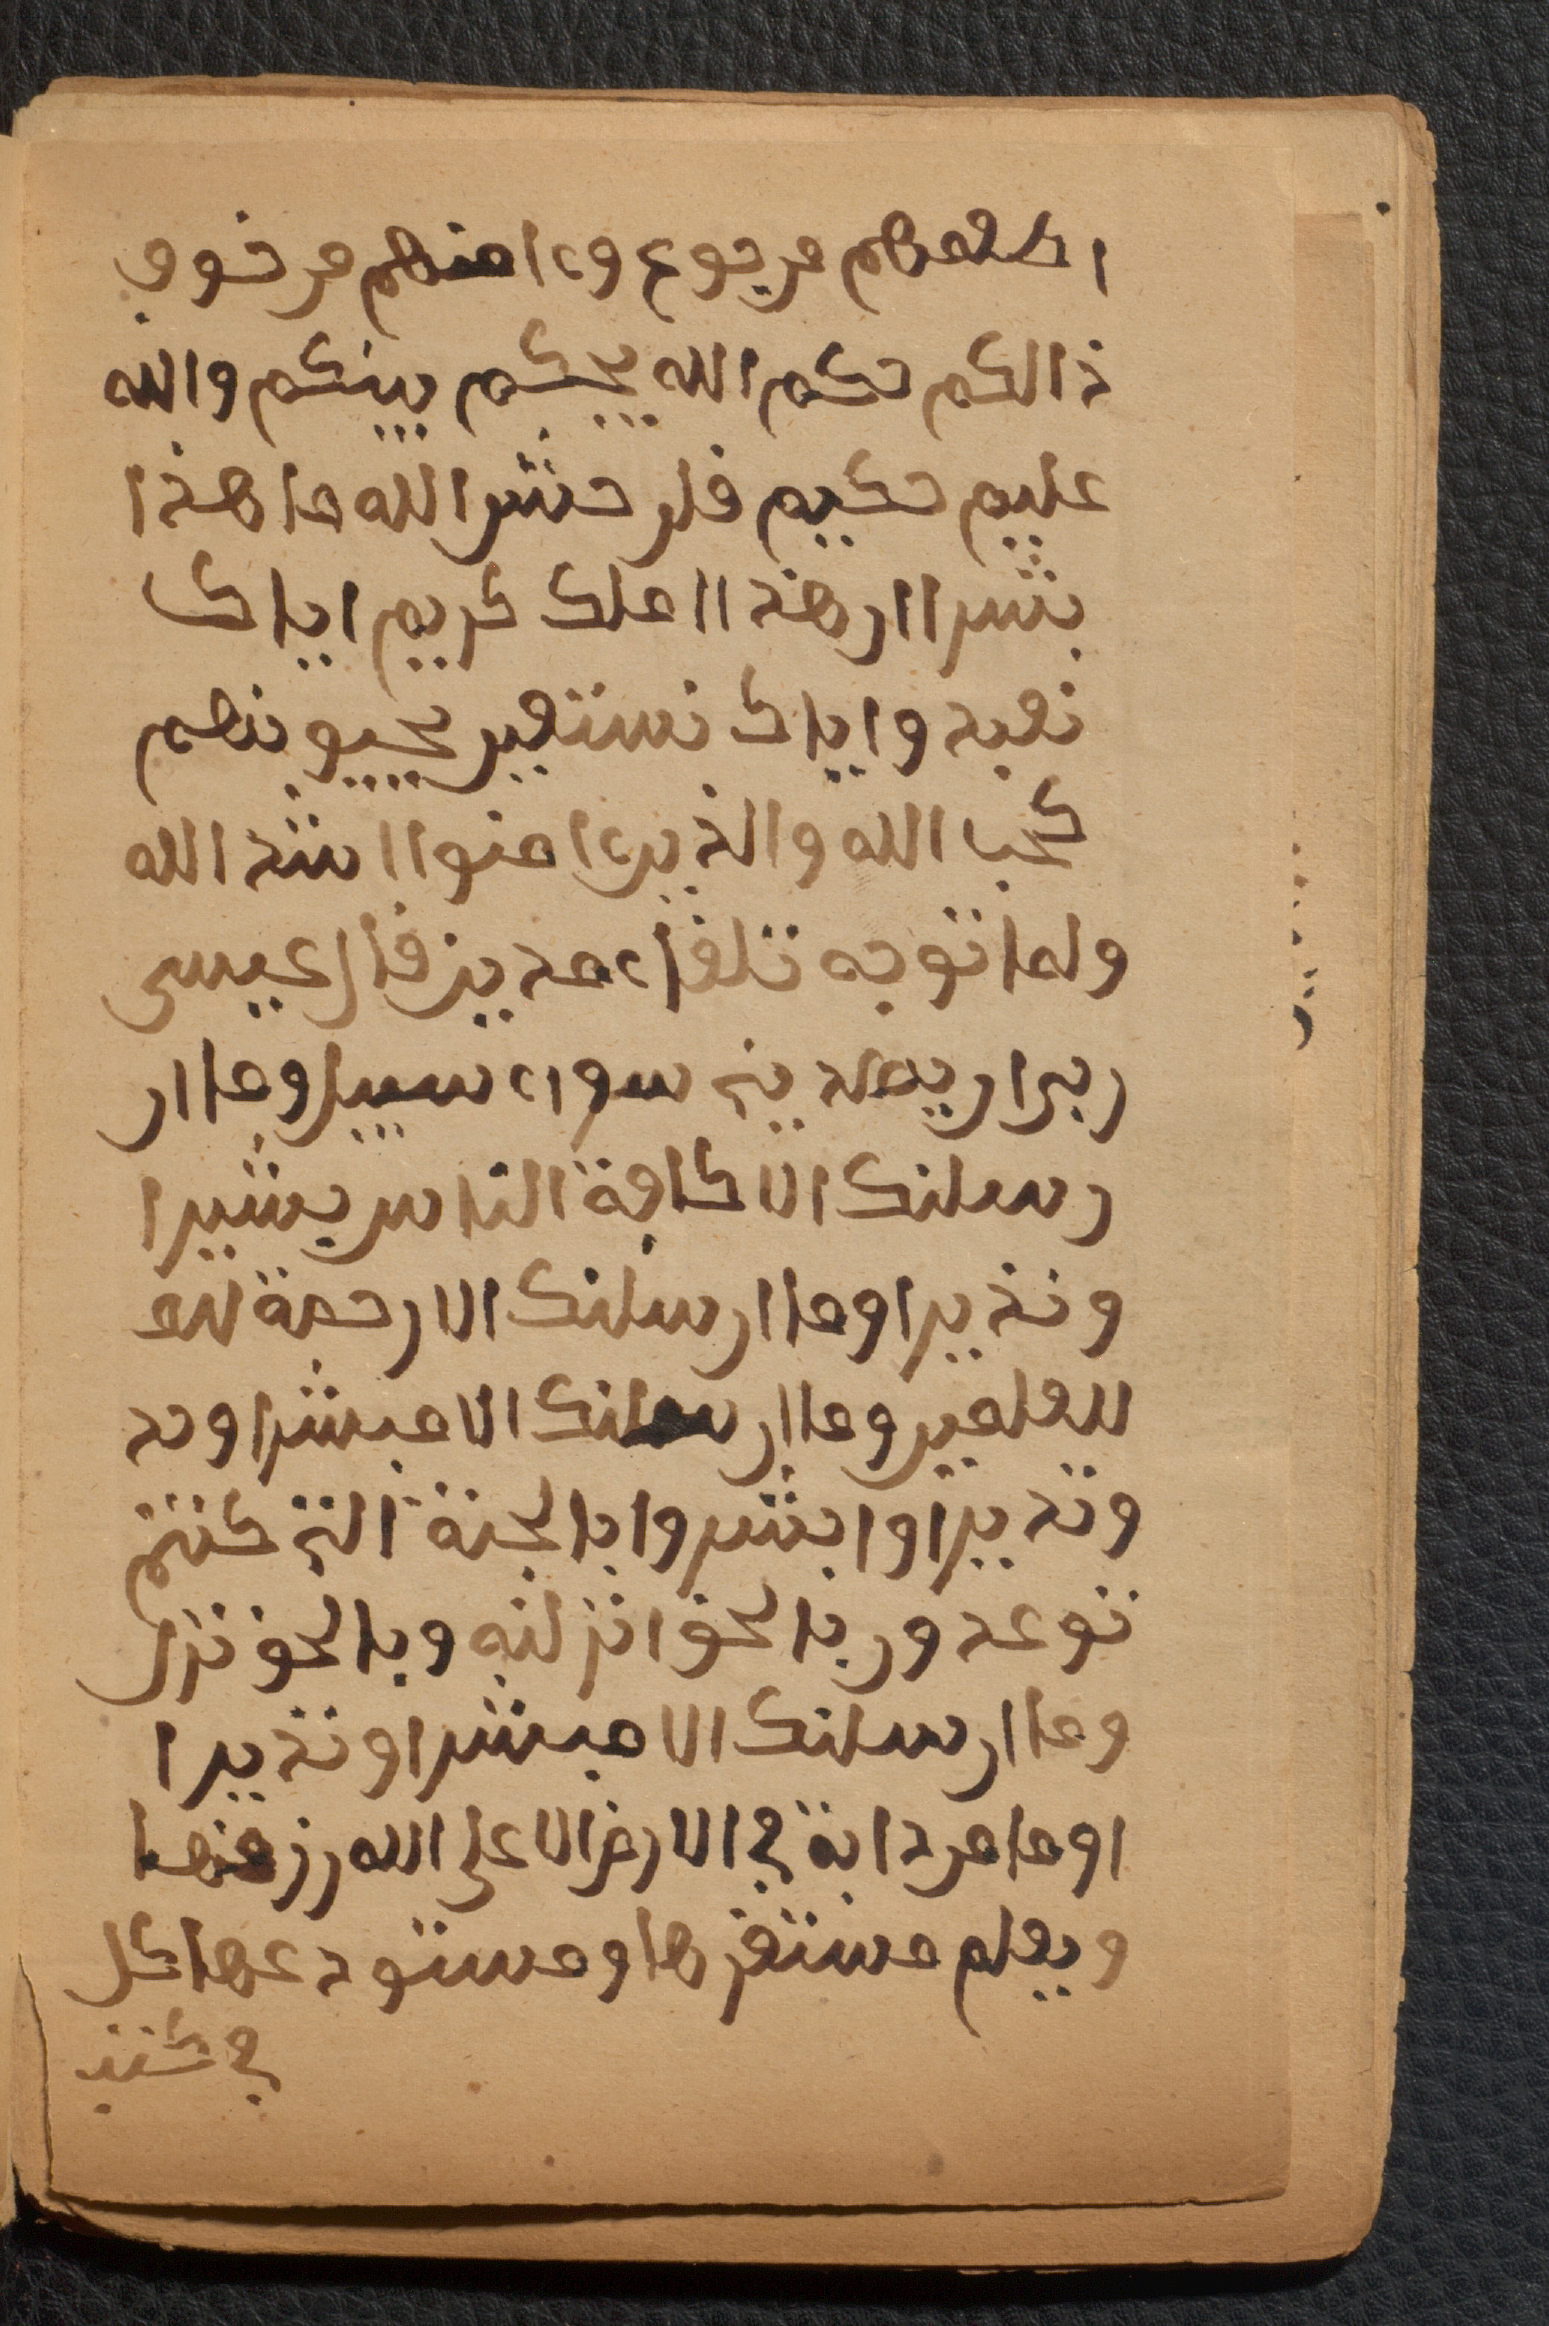 اطعمهم من جوع وءامنهم من خوف
ذالكم حكم الله يحكم بينكم والله
عليم حكيم قلن حش الله ما هذا
بشرا ان هذ اا ملك كريم اياك
نعبد واياك نستعين يحبونهم
كحب الله والذين ءامنوا اشد الله
ولما توجه تلقاء مدين قال عيسى
ربى ان يهدينى سواء سبيل وما ار
رسلنك الا كافة الناس بشيرا
ونذيرا وما ارسلنك الا رحمة للع
للعلمين وما ارسلنك الا مبشرا ونذ
ونذيرا وابشروا بالجنة التى كنتم
توعدون بالحق انزلنه وبالحق نزل
وما ارسلنك الا مبشرا ونذيرا
اوما من دابة في الارض الا على الله رزقها
ويعلم مستقرها ومستودعها كل
في كتب